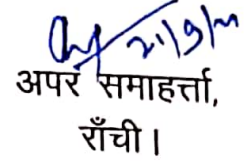 21/9/
अपर समाहर्त्ता,
राँची।